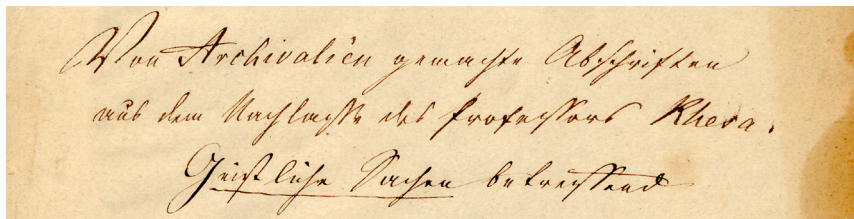 Von Archivalien gemachte Abschriften
aus dem Nachlasse des Professors Rhesa.
Geistliche Sachen betreffend